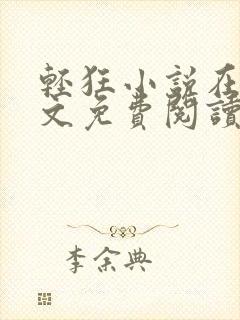 輕狂小說在
文免費閱讀
李余典